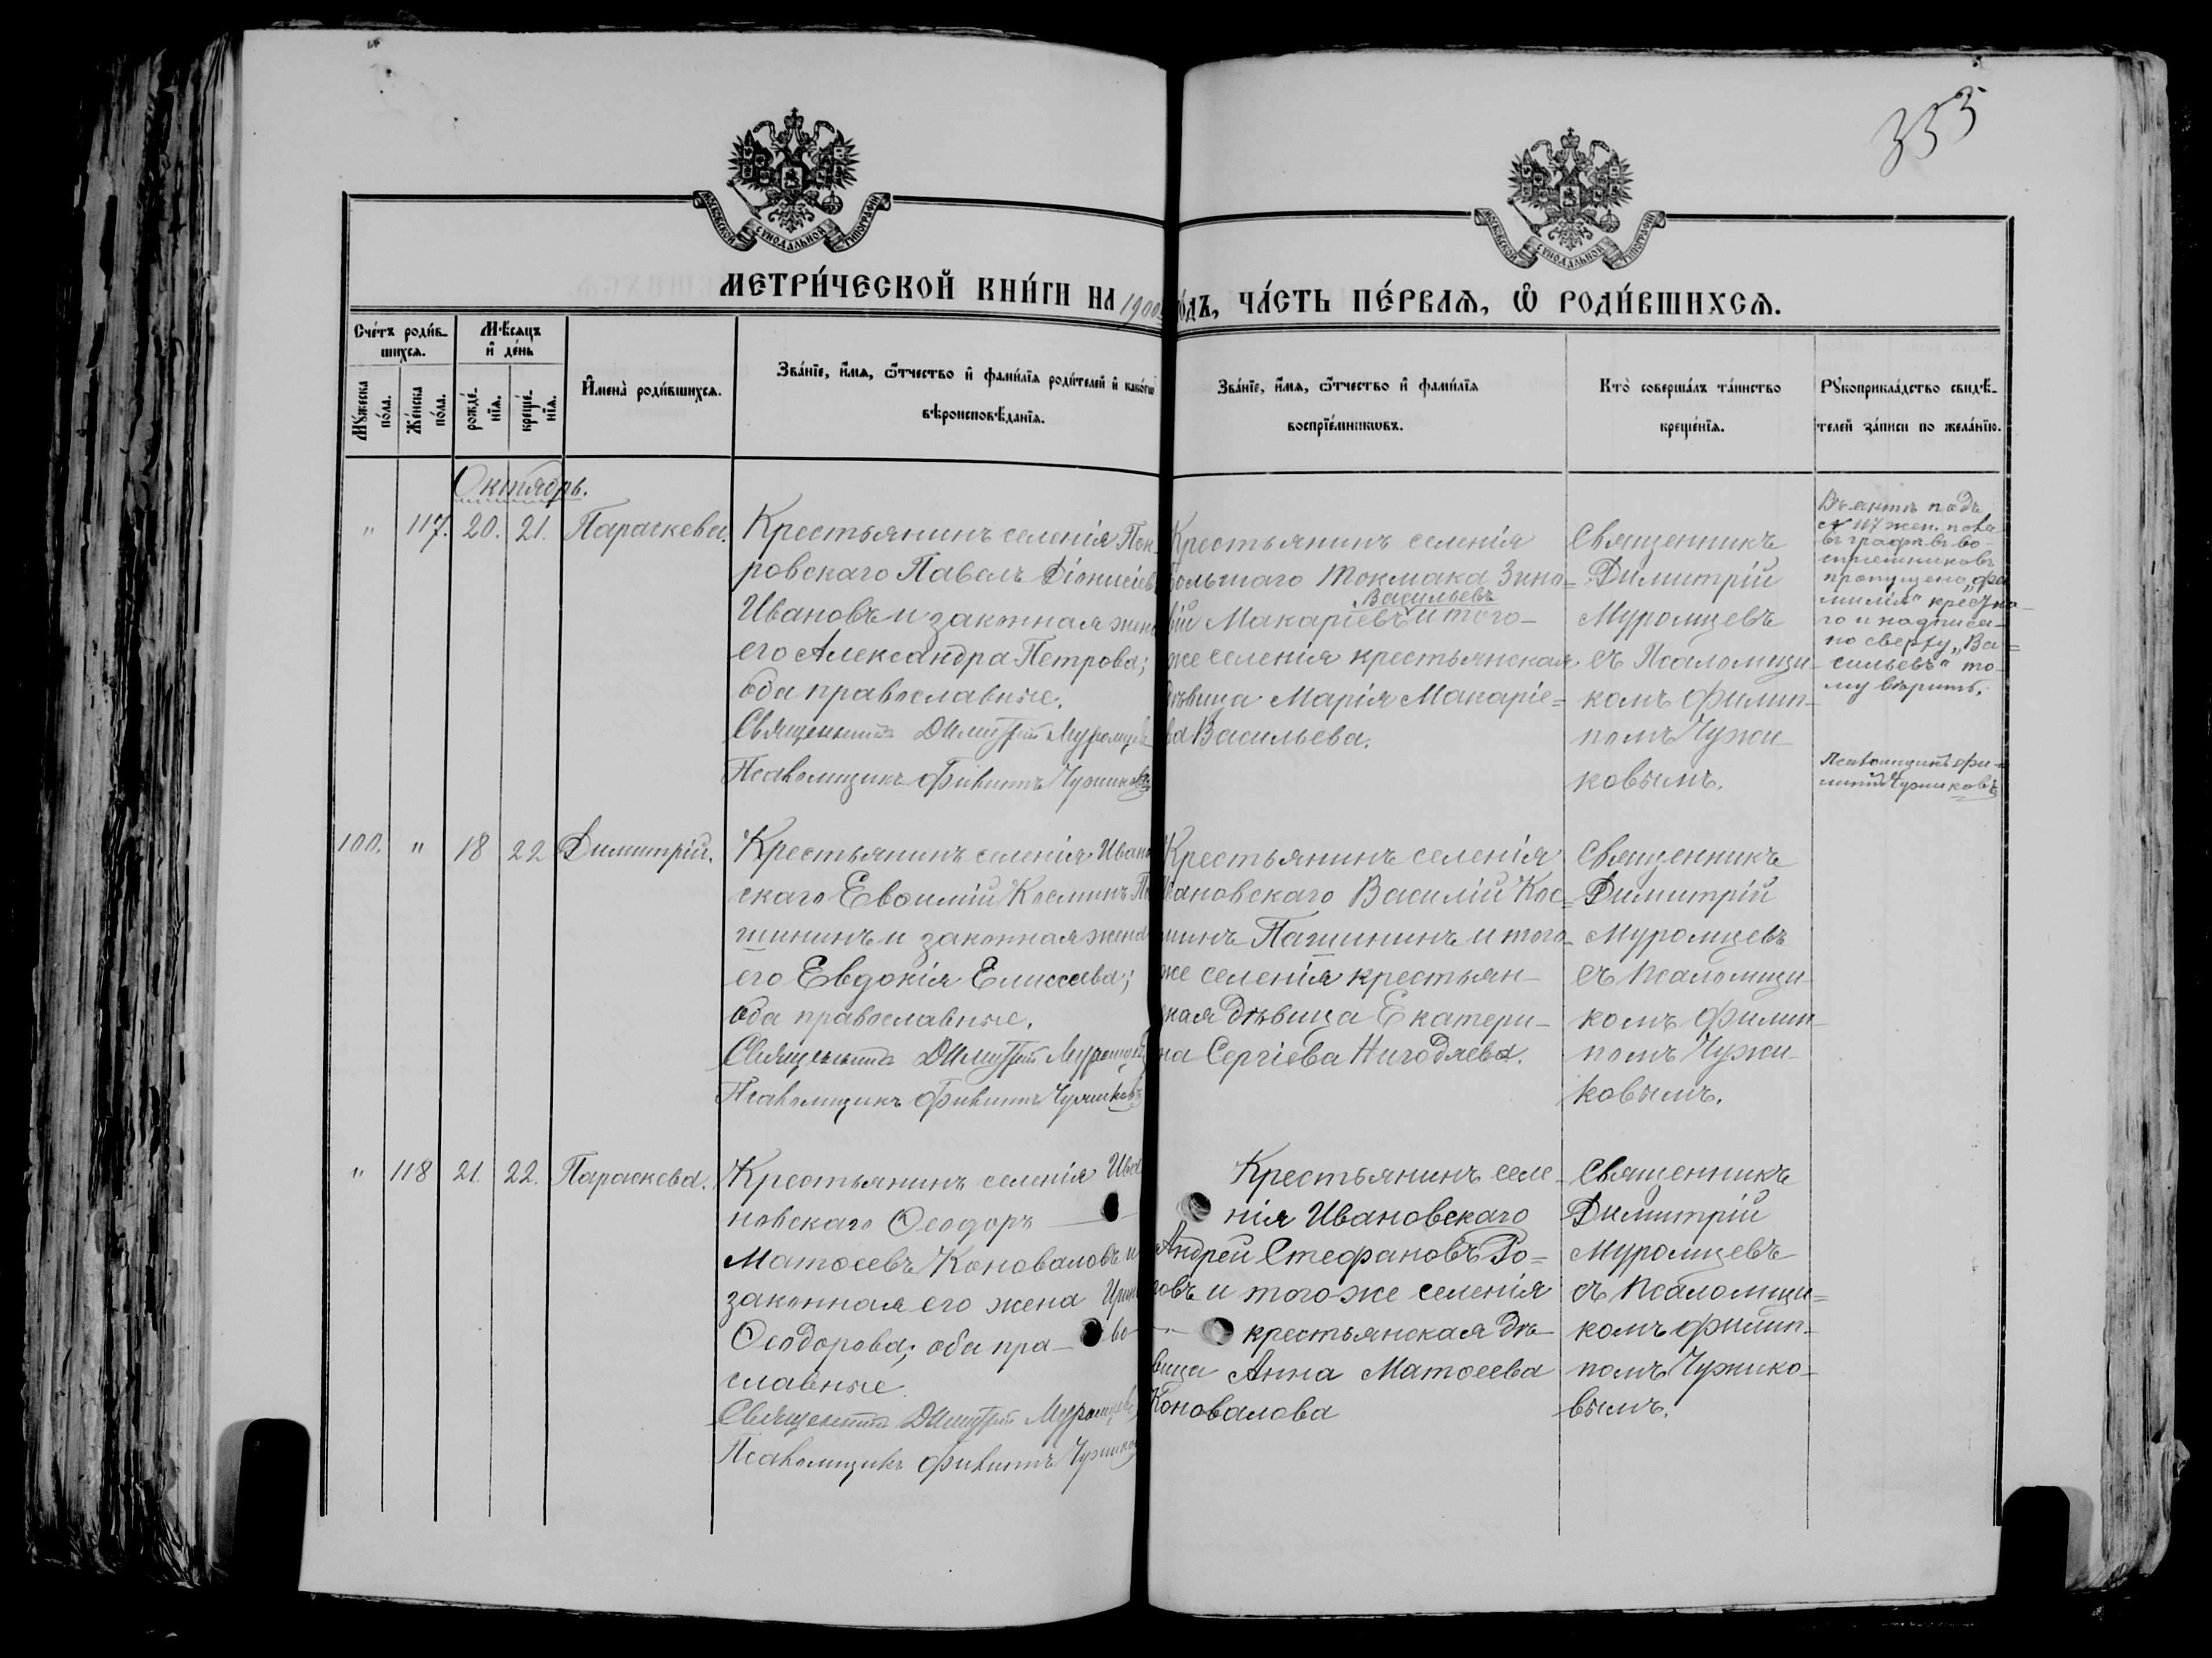 353
МОСКОВСКОЙ СѴНОДАЛЬНОЙ ТИПОГРАФІИ
МОСКОВСКОЙ СѴНОДАЛЬНОЙ ТИПОГРАФІИ
МЕТРИ́ЧЕСКОЙ КНИ́ГИ НА 1900 го́дъ, ЧА́СТЬ ПЕ́РВАѦ, Ѡ РОДИ́ВШИХСѦ.
Сче́тъ роди́в-
шихсѧ.
Мѣ́сѧцъ
и҆ де́нь
Мꙋжеска
по́ла.
Же́нска
по́ла.
рожде́-
нїѧ.
креще́-
нїѧ.
И҆мена̀ роди́вшихсѧ.
Зва́нїе, и҆́мѧ, ѻ҆́тчество и҆ фами́лїѧ роди́телей и҆ како́гѡ
вѣроисповѣ́данїѧ.
Зва́нїе, и҆́мѧ, ѻ҆́тчество и҆ фами́лїѧ
воспрїе́мникѡвъ.
Кто̀ соверша́лъ та́инство
креще́нїѧ.
Рꙋкоприкла́дство свидѣ́-
телей за́писи по жела́нїю.
Октябрь.
" 117. 20. 21. Параскева.
Крестьянинъ селенія Пок-
ровскаго Павелъ Діонисіевъ
Ивановъ и законная жена
его Александра Петрова;
оба православные.
Священникъ Димитрій Муромцевъ
Псаломщикъ Филиппъ Чужиковъ
Крестьянинъ селенія
Большаго Токмака Зино-
Васильевъ
вій Макаріевъ и того-
же селенія крестьянская
дѣвица Марія Макаріе-
ва Васильева.
Священникъ
Димитрій
Муромцевъ
съ Псаломщи-
комъ Филип-
помъ Чужи-
ковымъ.
Въ актѣ подъ
№ 117 жен. пола
въ графѣ во-
спріемниковъ
пропущено „фа
милія" крестна-
го и надписа-
но сверху „Ва-
сильевъ" то-
му вѣрить.
Псаломщикъ Фи-
липпъ Чужиковъ
100. " 18 22 Димитрій.
Крестьянинъ селенія Иванов
скаго Евѳимій Косминъ Па
шининъ и законная жена
его Евдокія Елисеева;
оба православные.
Священникъ Димитрій Муромцевъ
Псаломщикъ Филиппъ Чужиковъ
Крестьянинъ селенія
Ивановскаго Василій Кос-
минъ Пашининъ и того-
же селенія крестьян-
ская дѣвица Екатери-
на Сергіева Нигодяева.
Священникъ
Димитрій
Муромцевъ
съ Псаломщи-
комъ Филип-
помъ Чужи-
ковымъ.
" 118 21. 22. Параскева.
Крестьянинъ селенія Ива
новскаго Ѳеодоръ —
Матѳеевъ Коноваловъ и
законная его жена Ирина
Ѳеодорова; оба пра- во-
славные.
Священникъ Димитрій Муромцевъ
Псаломщикъ Филиппъ Чужиковъ
Крестьянинъ селе-
нія Ивановскаго
Андрей Стефановъ Ро-
говъ и того-же селенія
крестьянская дѣ-
вица Анна Матѳеева
Коновалова
Священникъ
Димитрій
Муромцевъ
съ Псаломщи-
комъ Филип-
помъ Чужико-
вымъ.